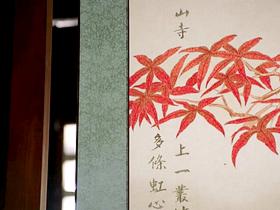 山寺
上一叢
多條虹心